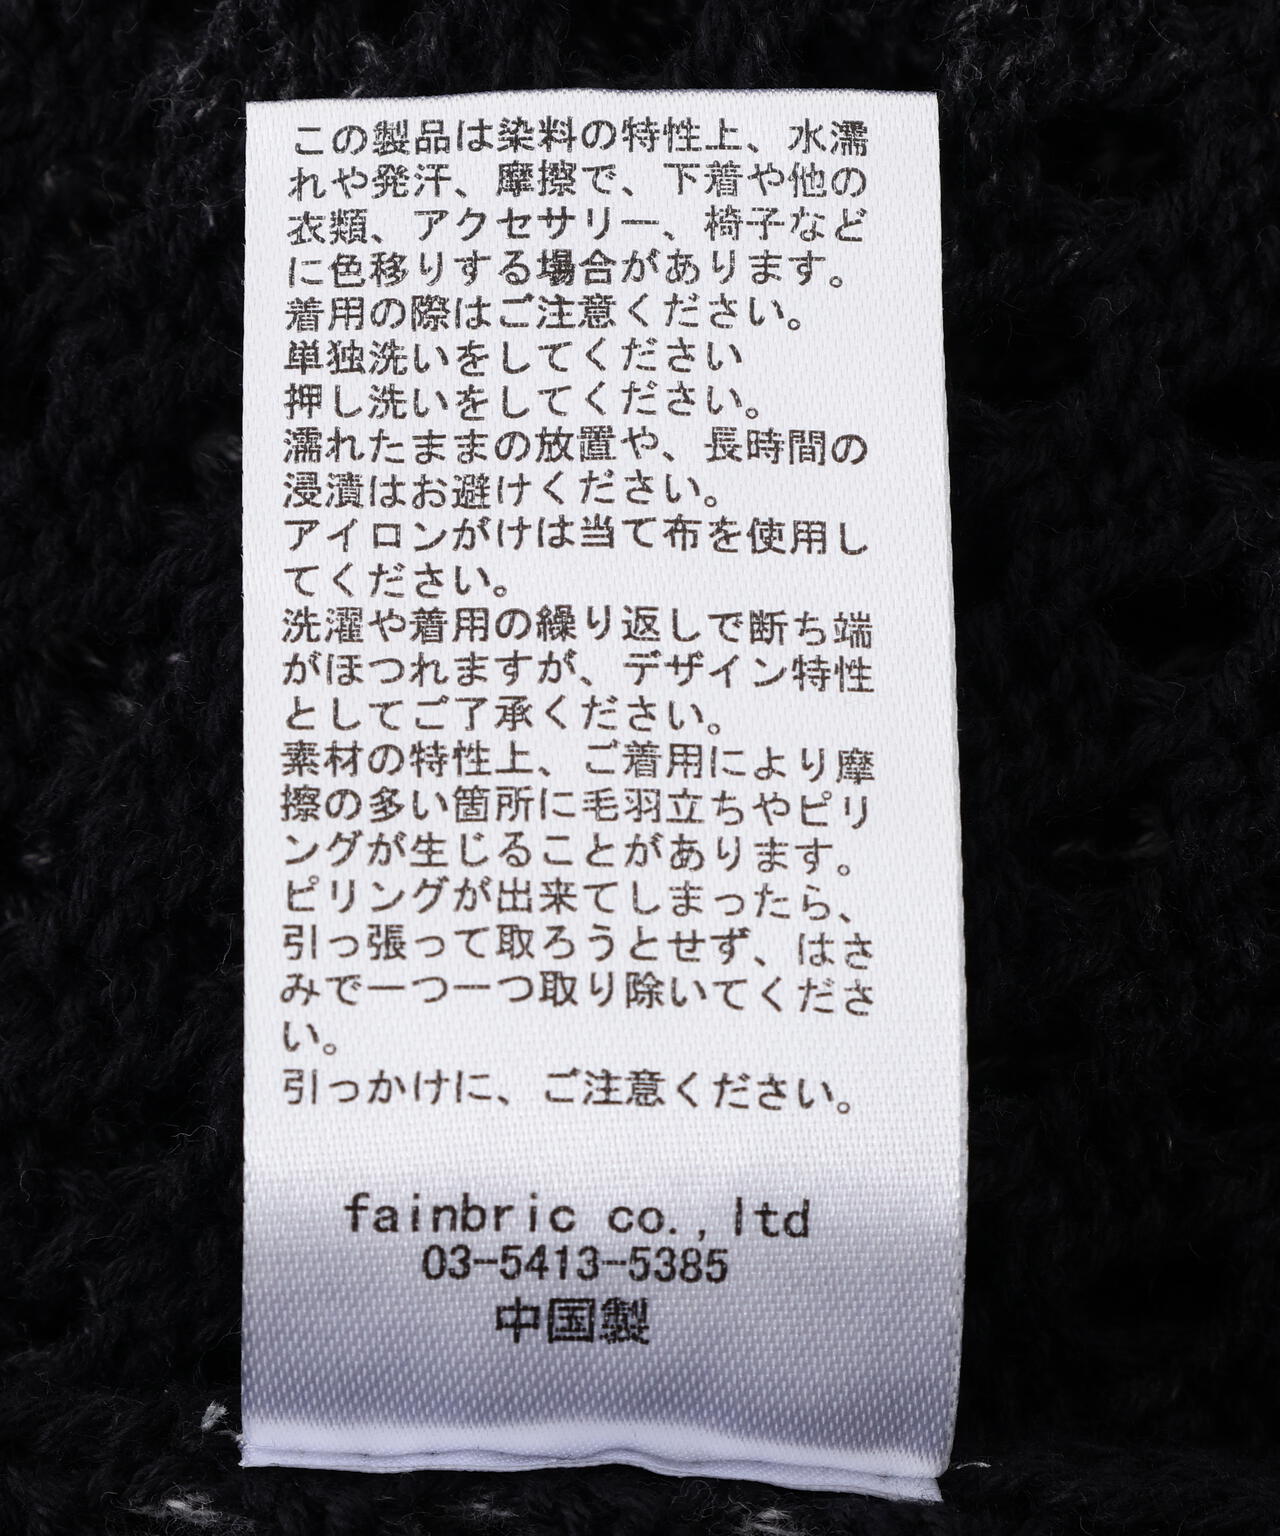 この製品は染料の特性上、水濡
れや発汗、摩擦で、下着や他の
衣類、アクセサリー、椅子など
に色移りする場合があります。
着用の際はご注意ください。
単独洗いをしてください
押し洗いをしてください。
濡れたままの放置や、長時間の
浸漬はお避けください。
アイロンがけは当て布を使用し
てください。
洗濯や着用の繰り返しで断ち端
がほつれますが、デザイン特性
としてご了承ください。
素材の特性上、ご着用により摩
擦の多い箇所に毛羽立ちやピリ
ングが生じることがあります。
ピリングが出来てしまったら、
引っ張って取ろうとせず、はさ
みで一つ一つ取り除いてくださ
い。
引っかけに、ご注意ください。
fainbric co.,ltd
03-5413-5385
中国製